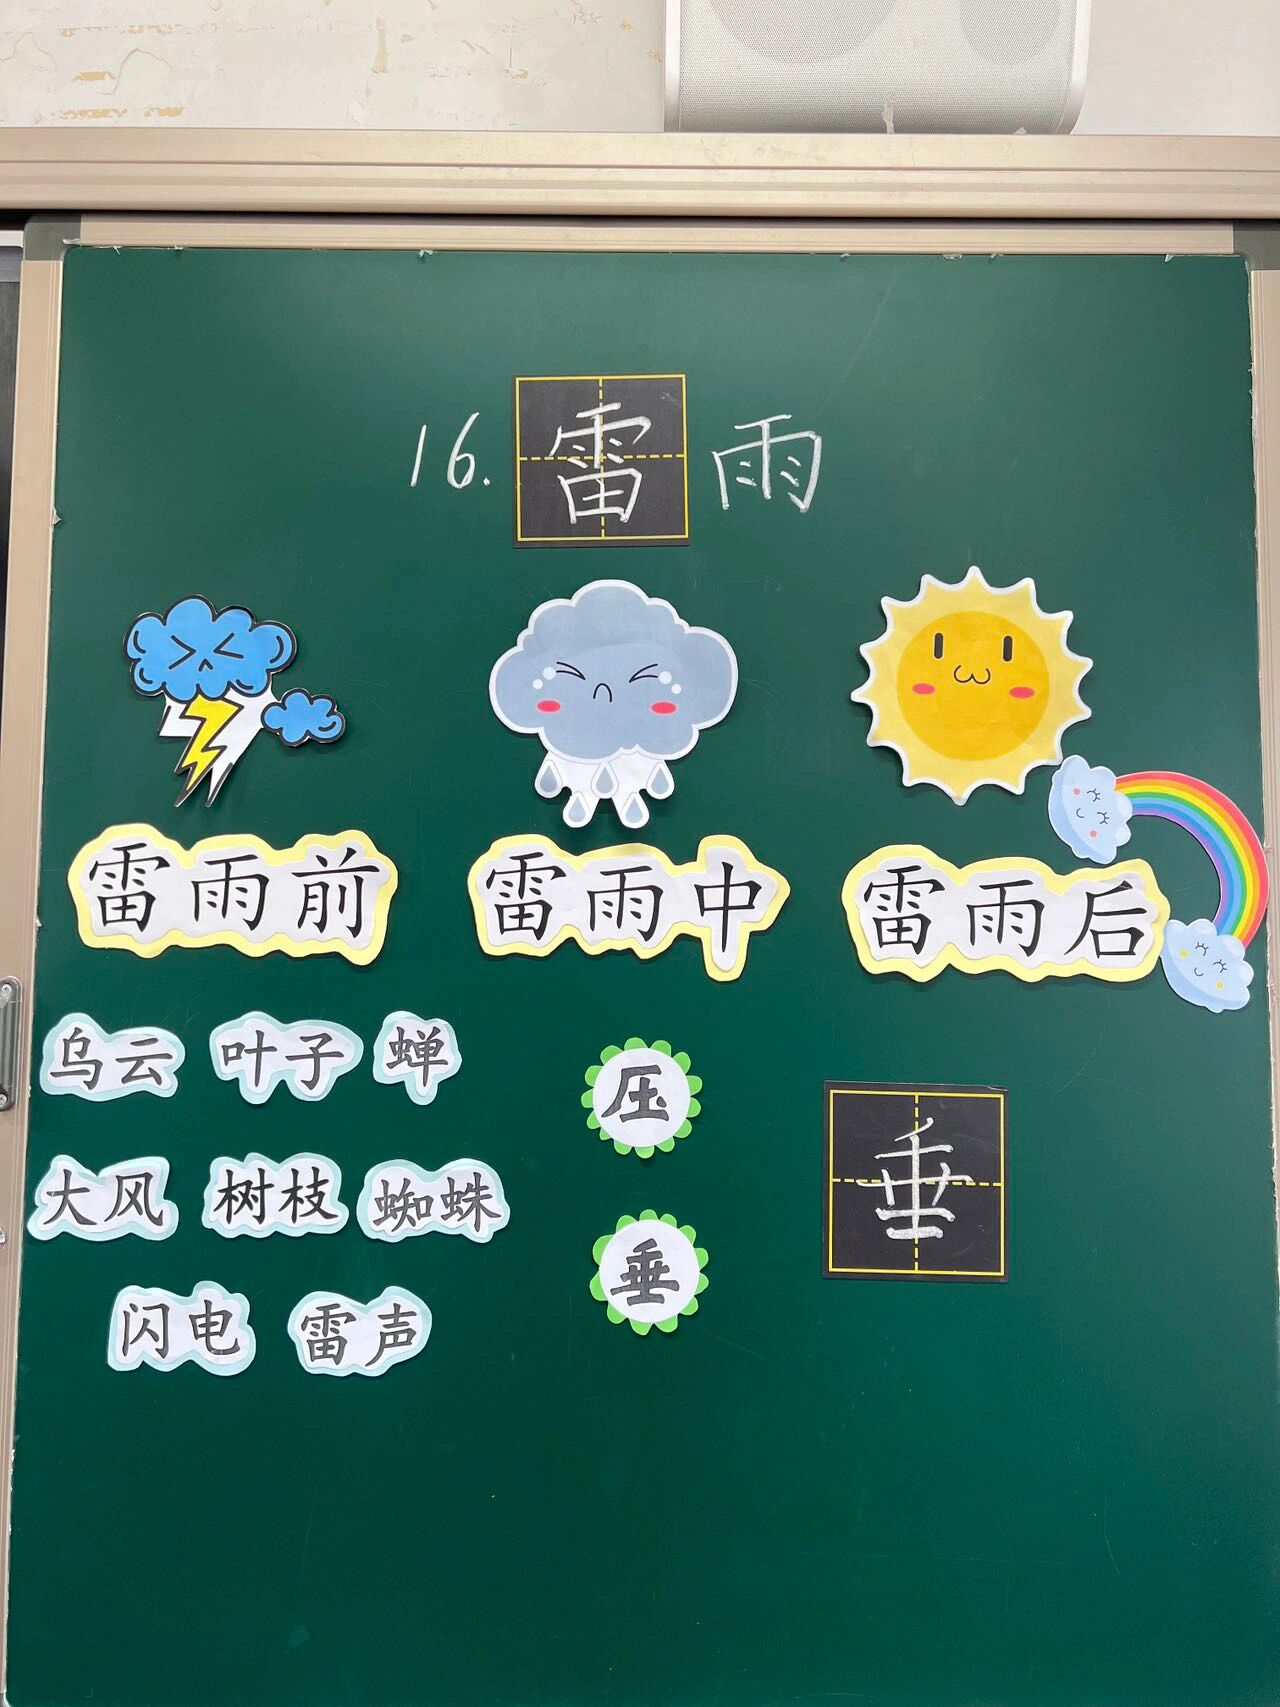 16. 雷雨
雷雨前 雷雨中 雷雨后
乌云 叶子 蝉
压
大风 树枝 蜘蛛
垂
垂
闪电 雷声